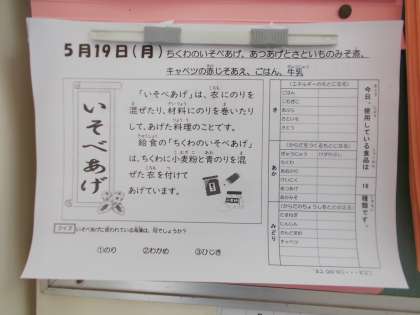 5月19日(月)ちくわのいそべあげ、あつあげとさといものみそ煮、
キャベツの赤じそあえ、ごはん、牛乳
いそべあげ
「いそべあげ」は、衣にのりを
混ぜたり、材料にのりを巻いたり
して、あげた料理のことです。
給食の「ちくわのいそべあげ」
は、ちくわに小麦粉と青のりを混
ぜた衣を付けて
あげています。
クイズ いそべあげに使われている海藻は、何でしょうか?
①のり ②わかめ ③ひじき
今日、使用している食品は 18 種類です。
き
(エネルギーのもとになる)
ごはん
こむぎこ
あぶら
さといも
さとう
あか
(からだをつくるもとになる)
ぎゅうにゅう
ちくわ
あおのり
あつあげ
みどり
(からだのちょうしをととのえる)
たまねぎ
にんじん
さんどまめ
キャベツ